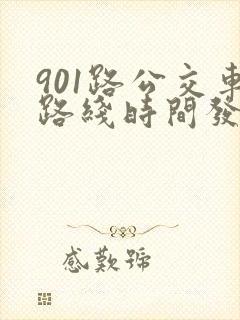 901路公交車
路綫時間發
感歎號